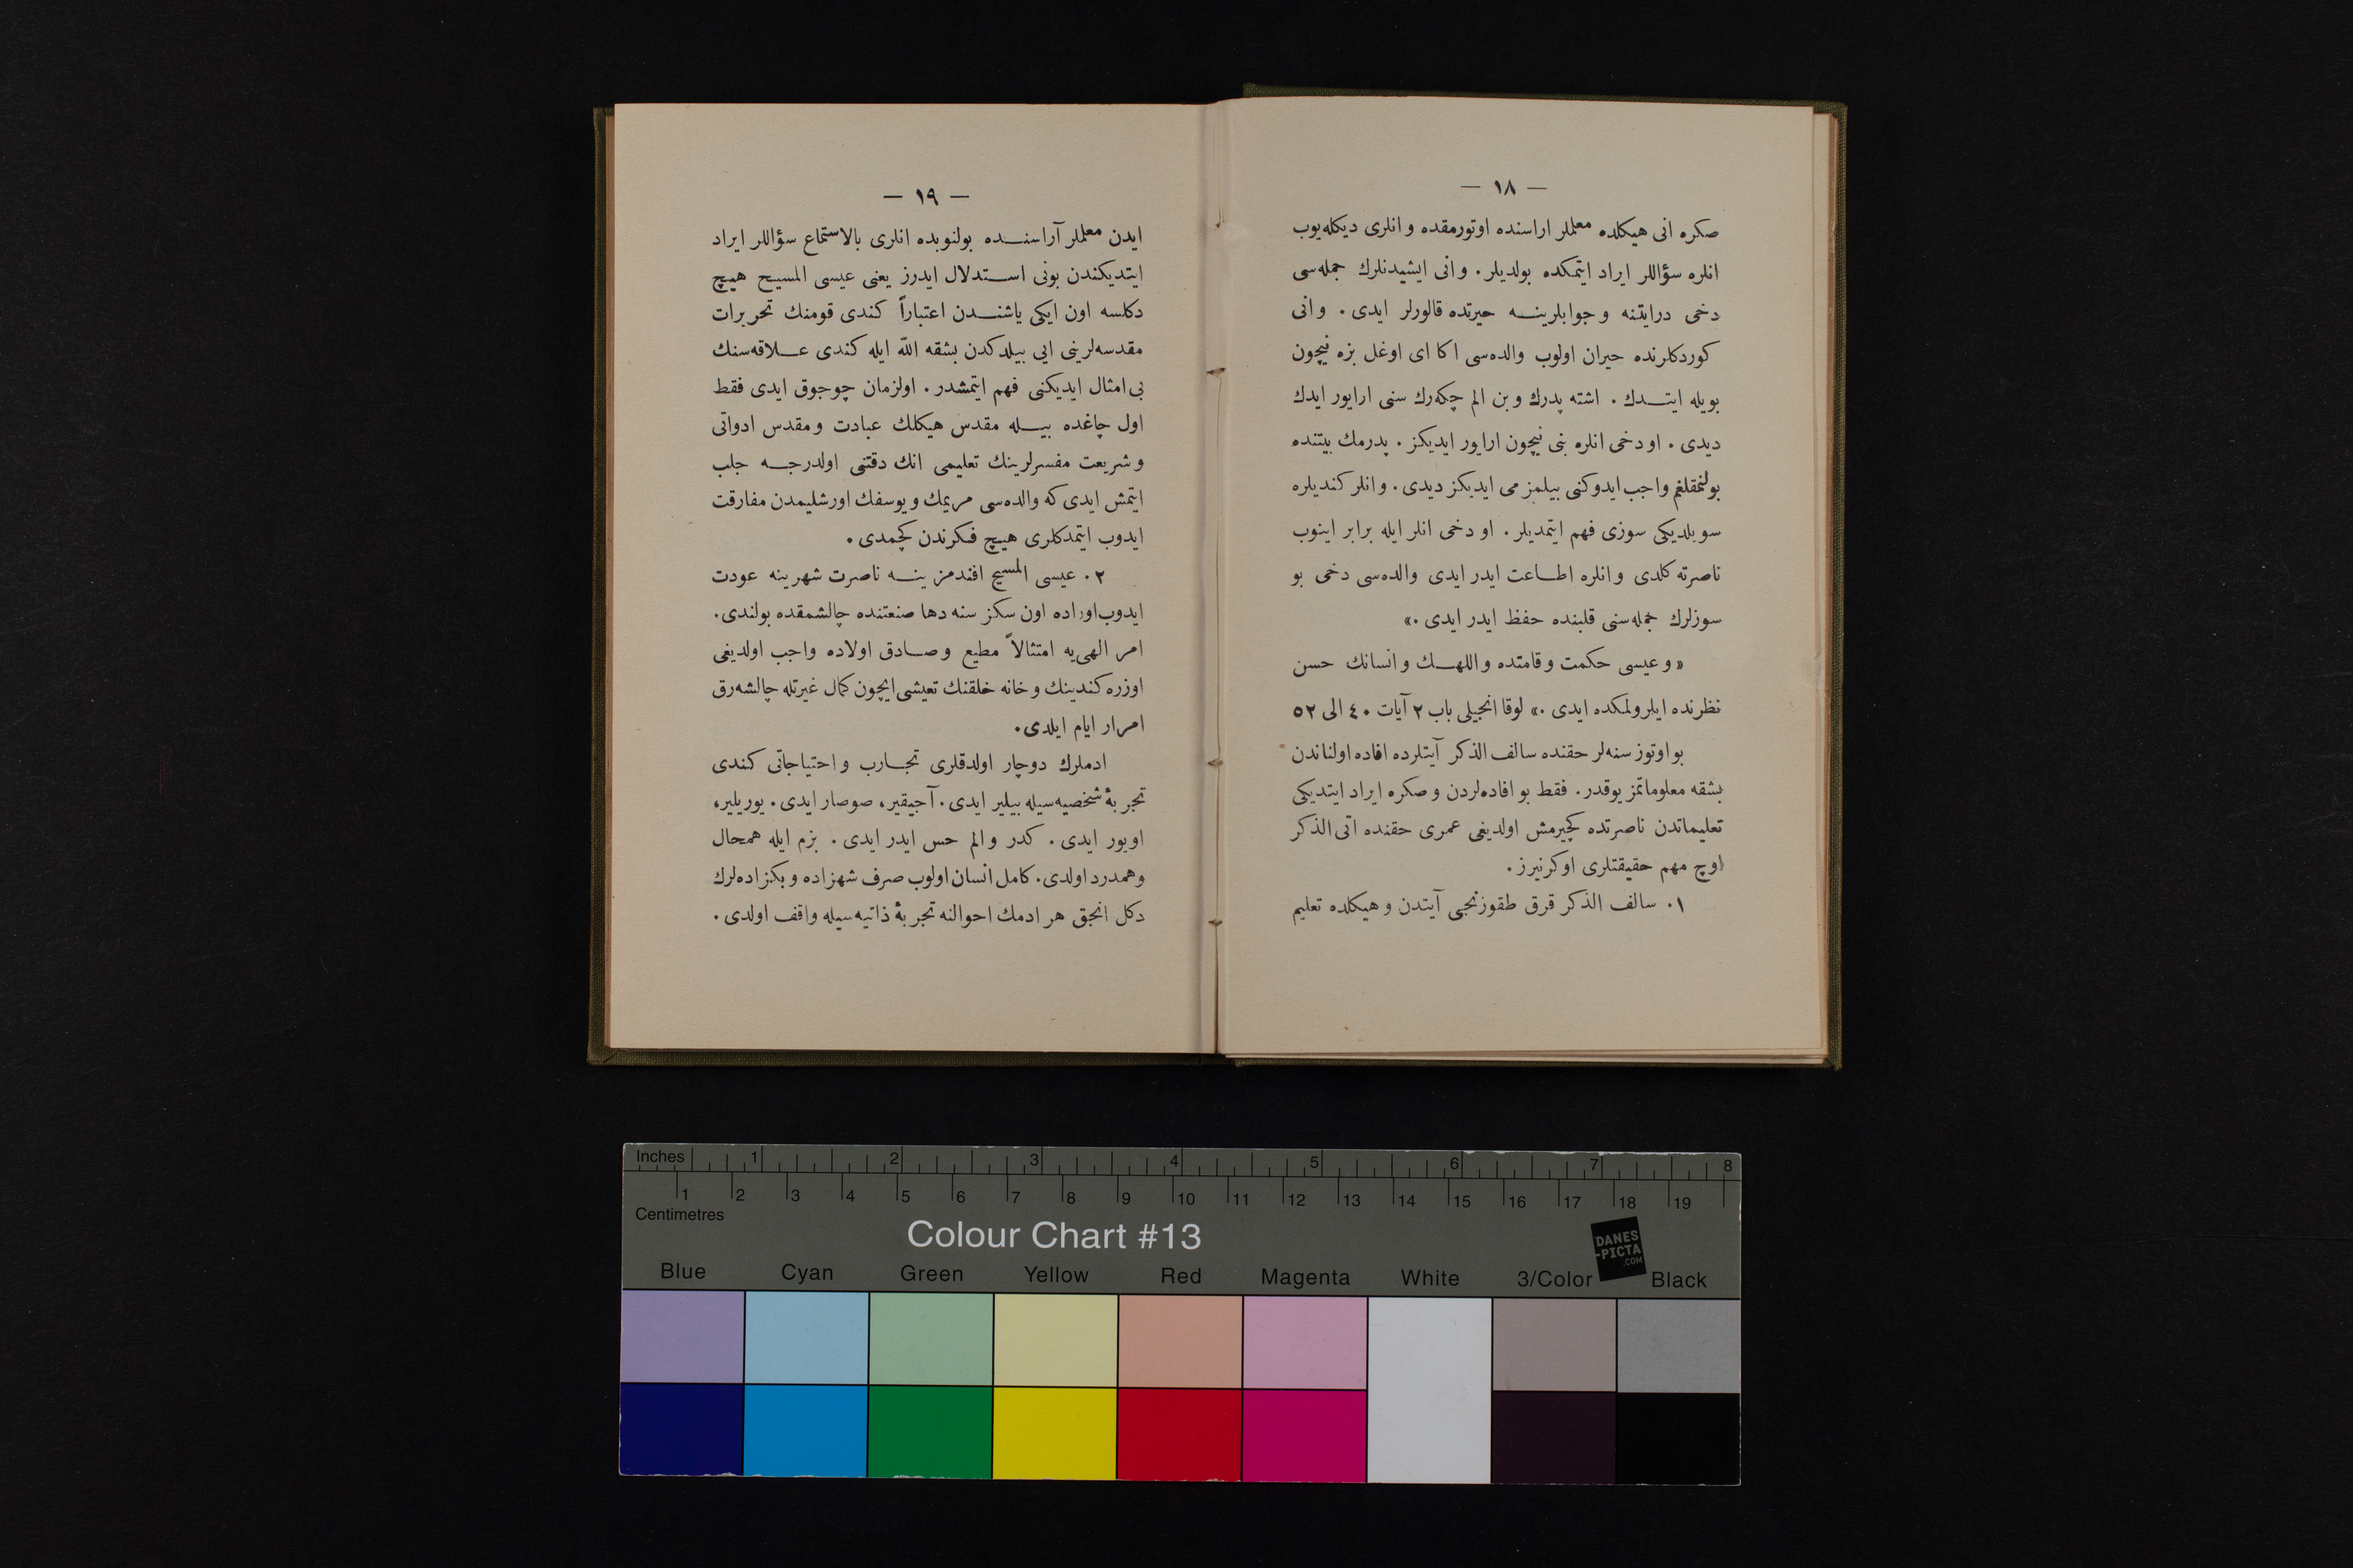 — ١٨ —
صكره انى هيكلده معلملر اراسنده اوتورمقده و انلرى ديكله‌يوب
انلره سؤاللر ايراد ايتمكده بولديلر . و انى ايشيدنلرك جمله‌سى
دخى درايتنه و جوابلرينه حيرتده قالورلر ايدى . و انى
كوردكلرنده حيران اولوب والده‌سى اكا اى اوغل بزه نيچون
بويله ايتدك . اشته پدرك و بن الم چكه‌رك سنى ارايور ايدك
ديدى . او دخى انلره بنى نيچون ارايور ايديكز . پدرمك بيتنده
بولنمقلغم واجب ايدوكنى بيلمز مى ايديكز ديدى . و انلر كنديلره
سويلديكى سوزى فهم ايتمديلر . او دخى انلر ايله برابر اينوب
ناصرته كلدى و انلره اطاعت ايدر ايدى والده‌سى دخى بو
سوزلرك جمله‌سنى قلبنده حفظ ايدر ايدى .»
« و عيسى حكمت و قامتده و اللهك و انسانك حسن
نظرنده ايلرولمكده ايدى .» لوقا انجيلى باب ٢ آيات ٤٠ الى ٥٢
بو اوتوز سنه‌لر حقنده سالف الذكر آيتلرده افاده اولناندن
بشقه معلوماتمز يوقدر . فقط بو افاده‌لردن و صكره ايراد ايتديكى
تعليماتدن ناصرتده كچيرمش اولديغى عمرى حقنده اتى الذكر
اوچ مهم حقيقتلرى اوكرنيرز .
١. سالف الذكر قرق طقوزنجى آيتدن و هيكلده تعليم
— ١٩ —
ايدن معلملر آراسنده بولنوبده انلرى بالاستماع سؤاللر ايراد
ايتديكندن بونى استدلال ايدرز يعنى عيسى المسيح هيچ
دكلسه اون ايكى ياشندن اعتباراً كندى قومنك تحريرات
مقدسه‌لرينى ايى بيلدكدن بشقه الله ايله كندى علاقه‌سنك
بى امثال ايديكنى فهم ايتمشدر . اولزمان چوجوق ايدى فقط
اول چاغده بيله مقدس هيكلك عبادت و مقدس ادواتى
و شريعت مفسرلرينك تعليمى انك دقتنى اولدرجه جلب
ايتمش ايدى كه والده‌سى مريمك و يوسفك اورشليمدن مفارقت
ايدوب ايتمدكلرى هيچ فكرندن كچمدى .
٢. عيسى المسيح افندمز ينه ناصرت شهرينه عودت
ايدوب اوراده اون سكز سنه دها صنعتنده چالشمقده بولندى .
امر الهى‌يه امتثالاً مطيع و صادق اولاده واجب اولديغى
اوزره كندينك و خانه خلقنك تعيشى ايچون كمال غيرتله چالشه‌رق
امرار ايام ايلدى .
ادملرك دوچار اولدقلرى تجارب و احتياجاتى كندى
تجربۀ شخصيه‌سيله بيلير ايدى . آجيقير، صوصار ايدى . يوريلير،
اويور ايدى . كدر و الم حس ايدر ايدى . بزم ايله همحال
و همدرد اولدى . كامل انسان اولوب صرف شهزاده و بكزاده‌لرك
دكل انجق هر ادمك احوالنه تجربۀ ذاتيه‌سيله واقف اولدى .
Inches 1 2 3 4 5 6 7 8
1 2 3 4 5 6 7 8 9 10 11 12 13 14 15 16 17 18 19
Centimetres
Colour Chart #13
DANES
-PICTA
.COM
Blue Cyan Green Yellow Red Magenta White 3/Color Black